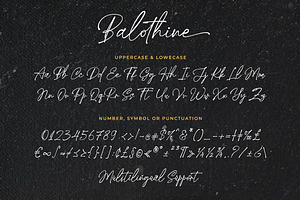 Balothine
UPPERCASE & LOWECASE
Aa Bb Cc Dd Ee Ff Gg Hh Ii Jj Kk Ll Mm
Nn Oo Pp Qq Rr Ss Tt Uu Vv Ww Xx Yy Zz
NUMBER, SYMBOL OR PUNCTUATION
0123456789
Multilingual Support